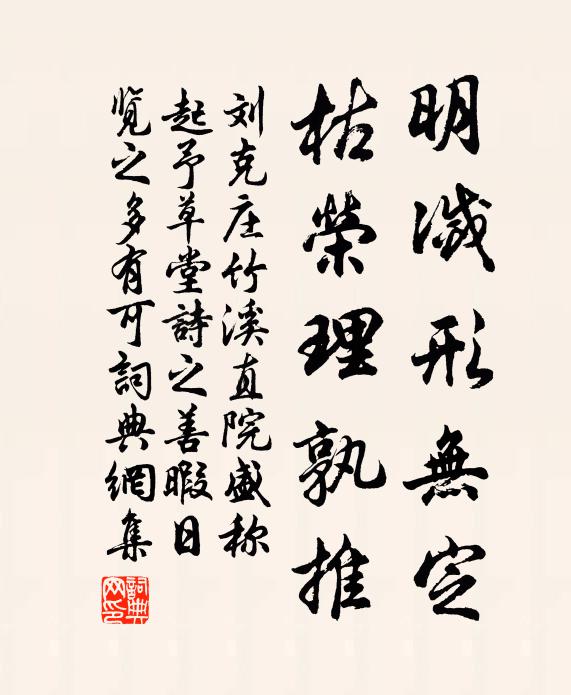 明滅形無定
枯榮理孰推
刘克庄竹溪直院盛称
起予草堂詩之善暇日
览之多有可詞典網集
詞典
网印